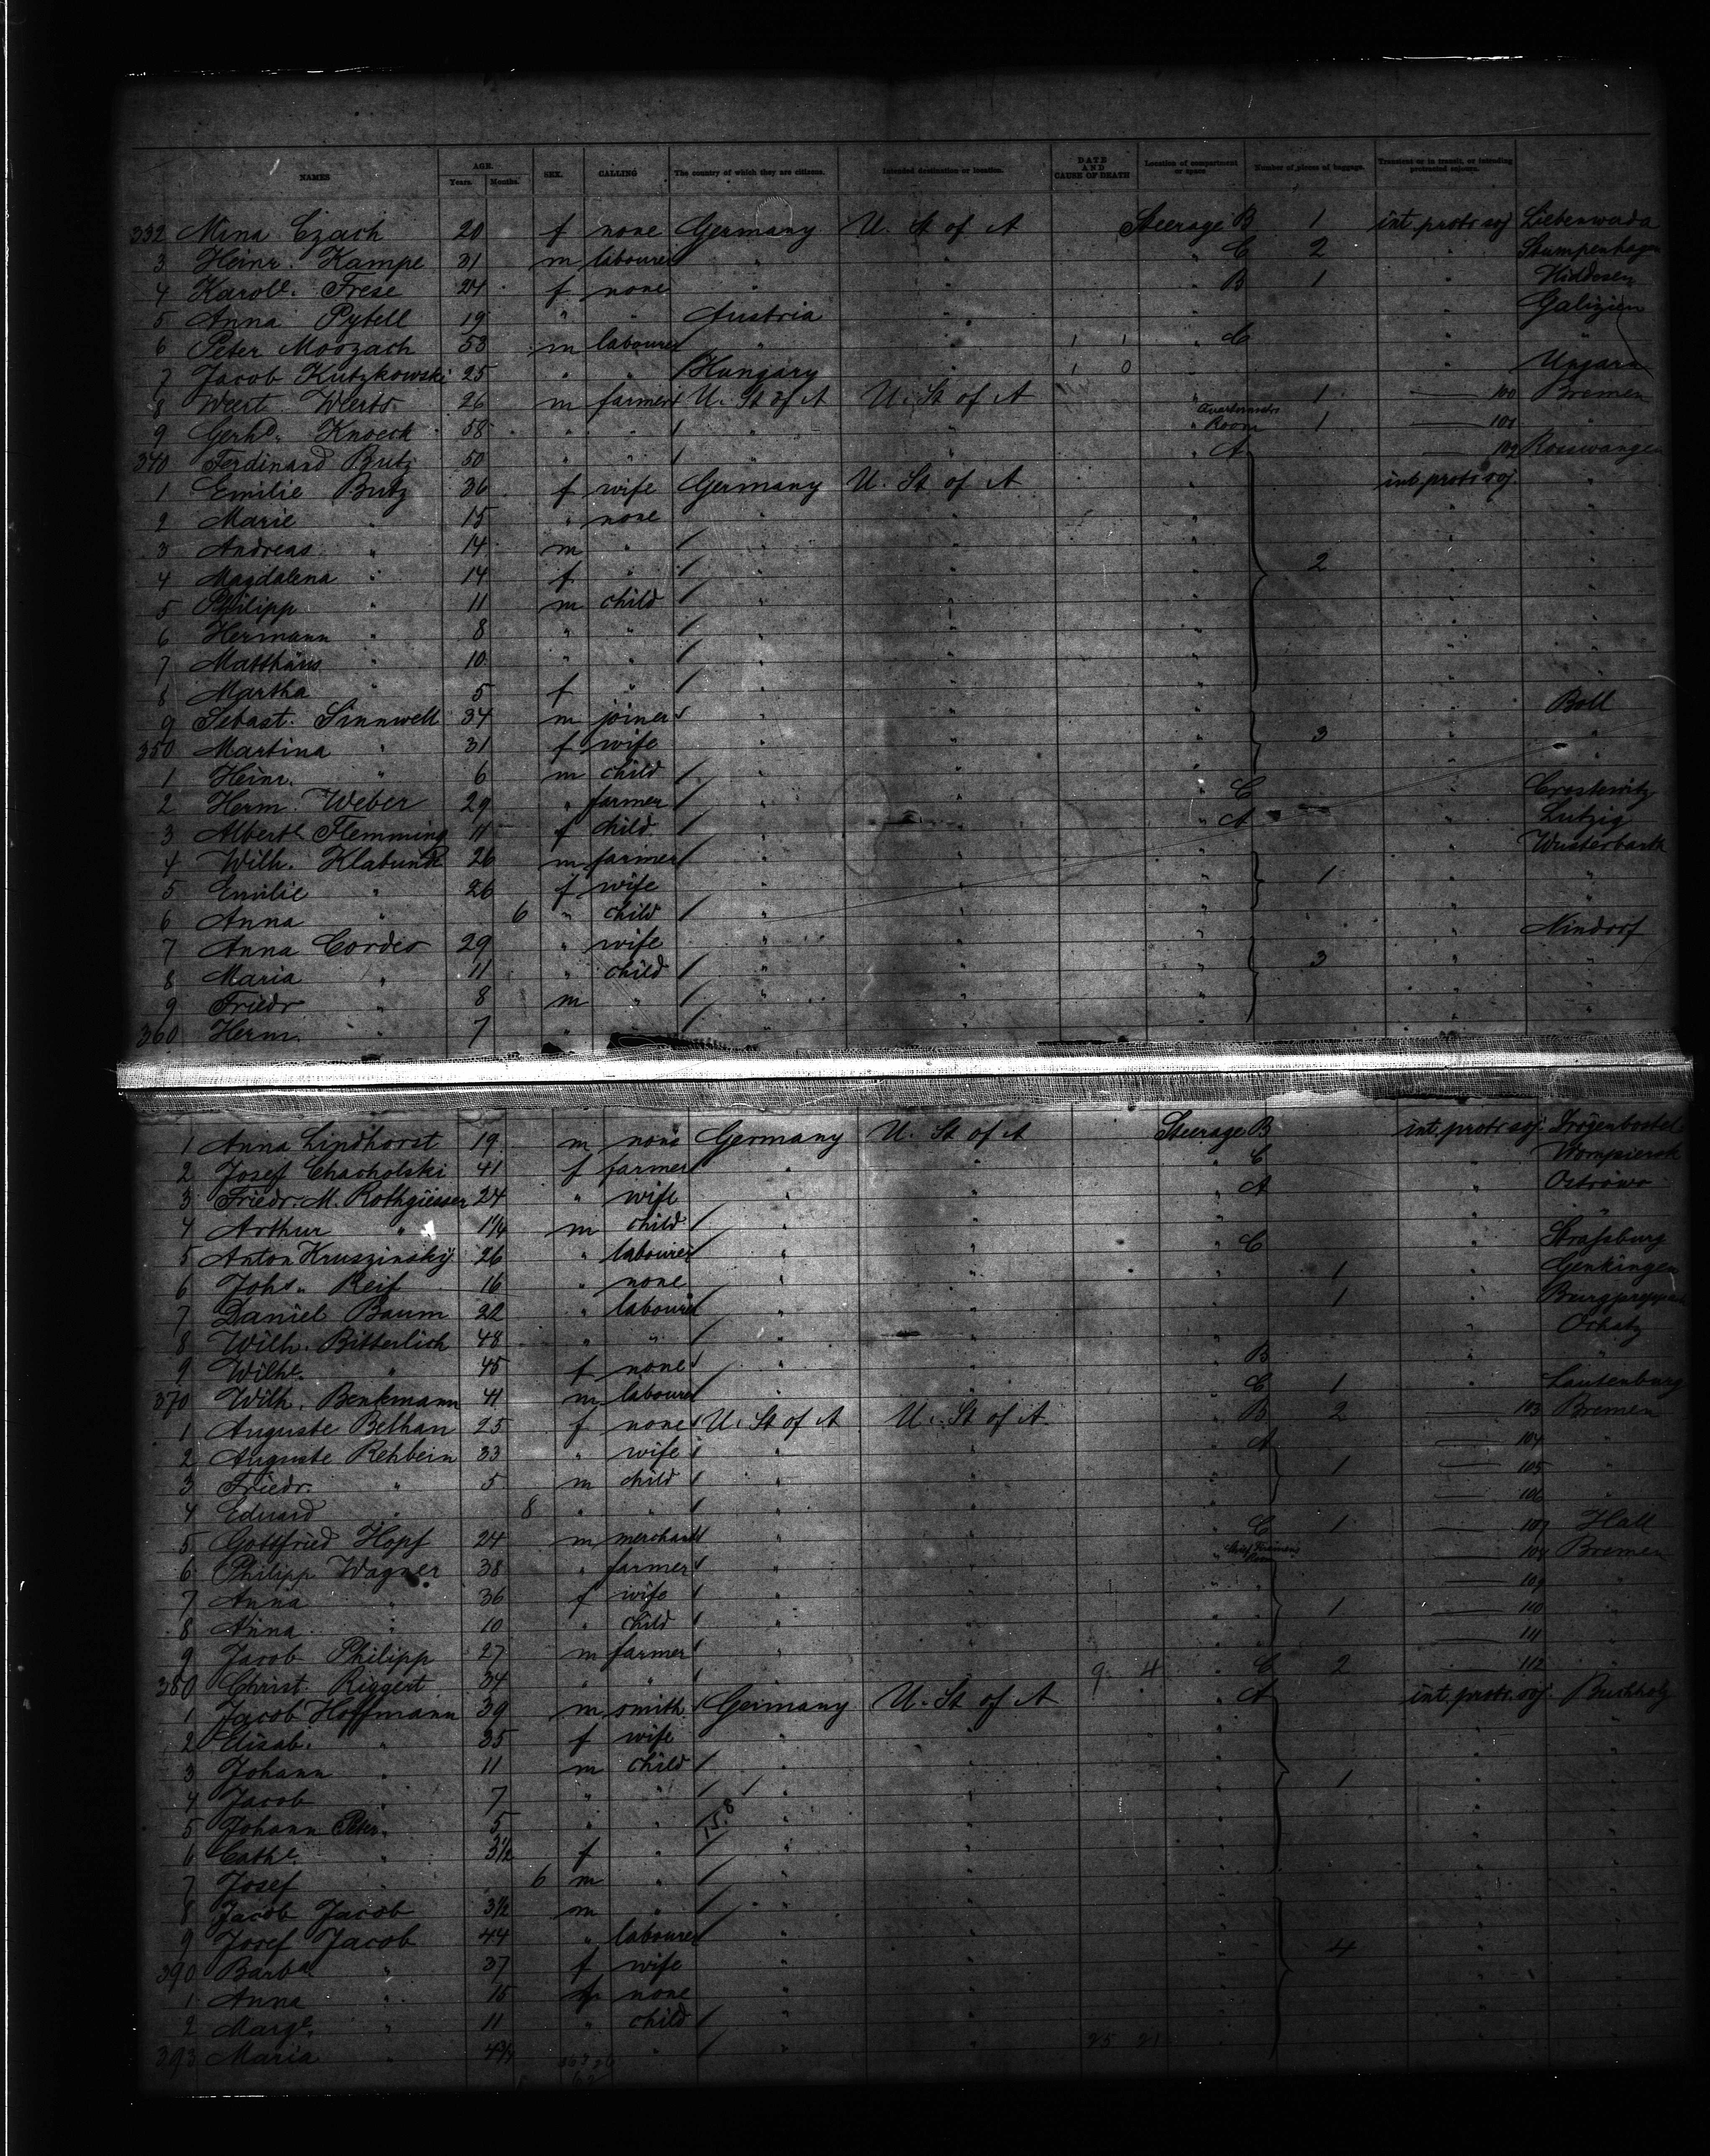 NAMES AGE. Years. Months. SEX. CALLING The country of which they are citizens. Intended destination or location. DATE AND CAUSE OF DEATH Location of compartment or space Number of pieces of baggage. Transient or in transit, or intending protracted sojourn.
332 Mina Czach 20 f none Germany U. St of A Steerage B 1 int. protr soj Liebenwerda
3 Heinr. Kampe 31 m labourer " " " C 2 " Stumpenhagen
4 Karole. Frese 24 f none " " " B 1 " Hiddesen
5 Anna Pytell 19 " " Austria " " Galizien
6 Peter Moozach 58 m labourer " " 1 1 " C " "
7 Jacob Kutzkowski 25 " " Hungary " 1 0 " Ungarn
8 Weert Werts 26 m farmer U. St of A U. St of A " 1 100 Bremen
9 Gerhd. Knoeck 58 " " " " " Room 1 101 "
340 Ferdinand Butz 50 " " " " " A 102 Rosswangen
1 Emilie Butz 36 f wife Germany U. St of A " int. protr soj. "
2 Marie " 15 " none " " " " "
3 Andreas " 14 m " " " " " "
4 Magdalena " 14 f " " " " 2 " "
5 Philipp " 11 m child " " " " "
6 Hermann " 8 " " " " " " "
7 Matthäus " 10 " " " " " " "
8 Martha " 5 f " " " " " "
9 Sebast. Sinnwell 34 m joiner " " " " Boll
350 Martina " 31 f wife " " " 3 " "
1 Heinr. " 6 m child " " " " "
2 Herm. Weber 29 " farmer " " " C "
3 Alberte Flemming 11 f child " " " A " Lutzig
4 Wilh. Klabunde 26 m farmer " " " " Wusterbarth
5 Emilie " 26 f wife " " " 1 " "
6 Anna " 6 " child " " " " "
7 Anna Cordes 29 " wife " " " " Nindorf
8 Maria " 11 " child " " " 3 " "
9 Friedr " 8 m " " " " " "
360 Herm. " 7 " " " " " " "
1 Anna Lindhorst 19 m none Germany U. St of A Steerage B int. protr soj. Drögenbostel
2 Josef Chacholski 41 f farmer " " " C " Wompiersk
3 Friedr. M. Rothgiesser 24 " wife " " " A " Ostrowo
4 Arthur " 1 1/4 m child " " " "
5 Anton Kruszinsky 26 " labourer " " " C " Strassburg
6 Johs. Reif 16 " none " " 1 " Genkingen
7 Daniel Baum 22 " labourer " " 1 "
8 Wilh. Bitterlich 48 " " " " " Oschatz
9 Wilhe. " 45 f none " " " B " "
370 Wilh. Benkmann 41 m labourer " " " C 1 " Lautenburg
1 Auguste Belhan 25 f none U. St of A U. St of A " B 2 103 Bremen
2 Auguste Rehbein 33 " wife " " " A 104 "
3 Friedr. " 5 m child " " " 1 105 "
4 Eduard " 8 " " " " 106 "
5 Gottfried Hopf 24 m merchant " " " C 1 107 Hall
6 Philipp Wagner 38 " farmer " " " Room 108 Bremen
7 Anna " 36 f wife " " " 109 "
8 Anna " 10 " child " " " 1 110 "
9 Jacob Philipp 27 m farmer " " " 111 "
380 Christ. Riggert 34 " " " " 9 4 " C 2 112 "
1 Jacob Hoffmann 39 m smith Germany U. St of A " A int. protr. soj. Buchholz
2 Elisab. " 35 f wife " " " " "
3 Johann " 11 m child " " " " "
4 Jacob " 7 " " " " " 1 " "
5 Johann Peter " 5 " " " " " " "
6 Cathe. " 3 1/2 f " " " " " "
7 Josef " 6 m " " " " " "
8 Jacob Jacob 3 1/2 m " " " " " "
9 Josef Jacob 44 " labourer " " " " "
390 Barba " 37 f wife " " " 4 " "
1 Anna " 15 f none " " " " "
2 Marge. " 11 " child " " " " "
393 Maria " " " " 25 21 " " "